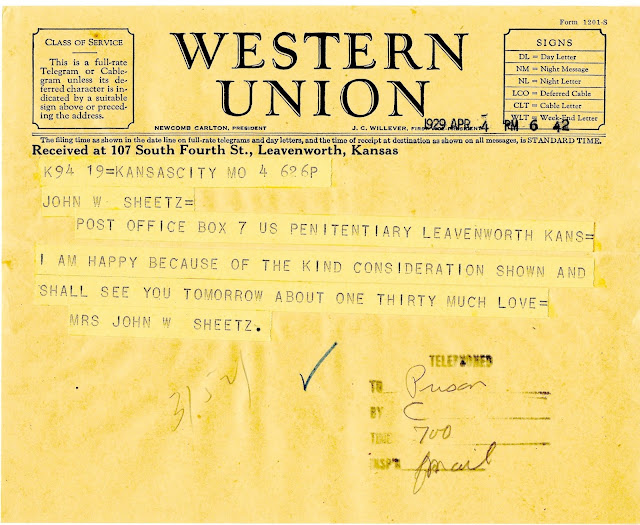 Form 1201-S
CLASS OF SERVICE
This is a full-rate
Telegram or Cable-
gram unless its de-
ferred character is in-
dicated by a suitable
sign above or preced-
ing the address.
WESTERN
UNION
NEWCOMB CARLTON, PRESIDENT
J. C. WILLEVER, FIRST VICE-PRESIDENT
SIGNS
DL = Day Letter
NM = Night Message
NL = Night Letter
LCO = Deferred Cable
CLT = Cable Letter
WLT = Week-End Letter
1929 APR 4 PM 6 42
The filing time as shown in the date line on full-rate telegrams and day letters, and the time of receipt at destination as shown on all messages, is STANDARD TIME.
Received at 107 South Fourth St., Leavenworth, Kansas
K94 19=KANSASCITY MO 4 626P
JOHN W SHEETZ=
POST OFFICE BOX 7 US PENITENTIARY LEAVENWORTH KANS=
I AM HAPPY BECAUSE OF THE KIND CONSIDERATION SHOWN AND
SHALL SEE YOU TOMORROW ABOUT ONE THIRTY MUCH LOVE=
MRS JOHN W SHEETZ.
TELEPHONED
TO Prison
BY C
TIME 700